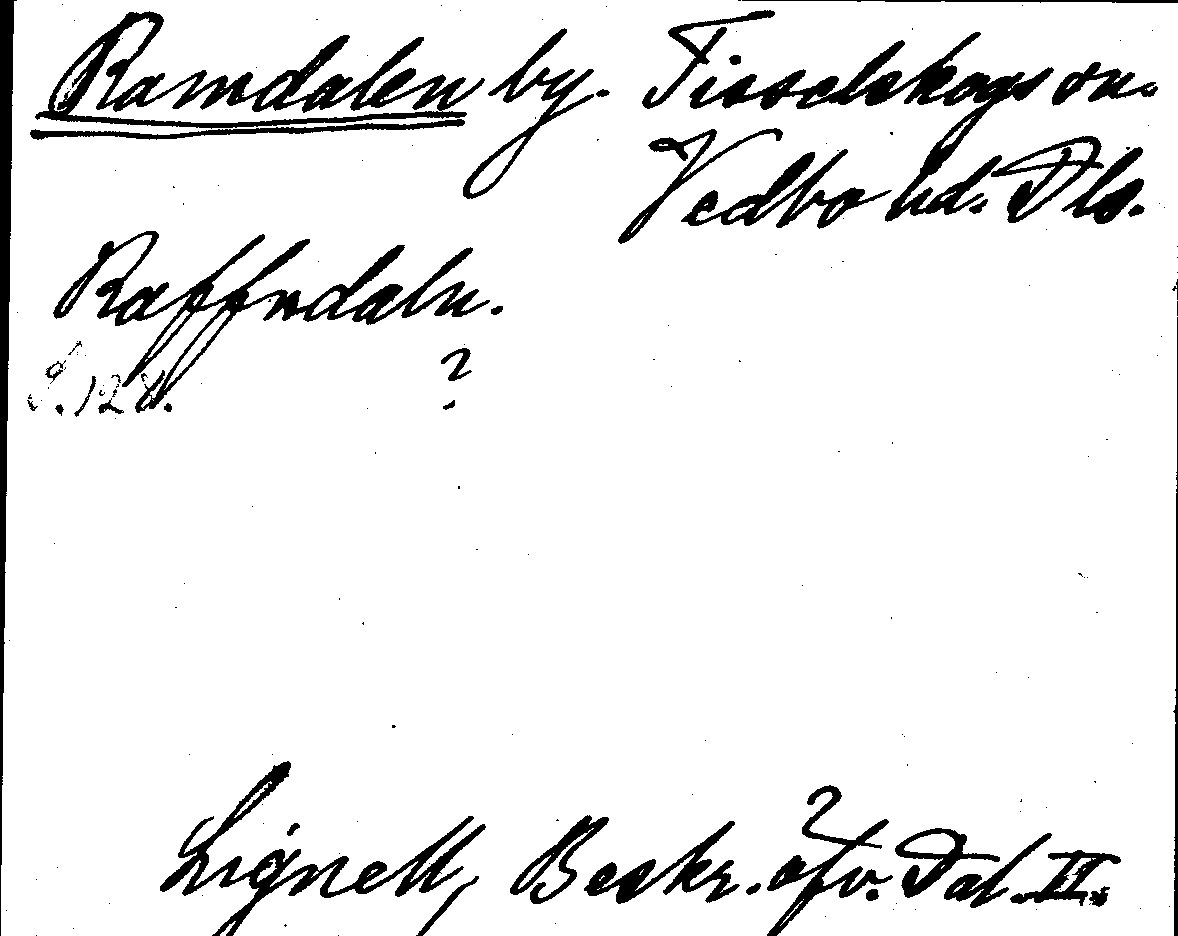 Ramdalen by. Tisselskogs sn.
Vedbo hd. Dls.
Raffndaln.
S. 128. ?
Lignell, Beskr. öfv. Dal. II.